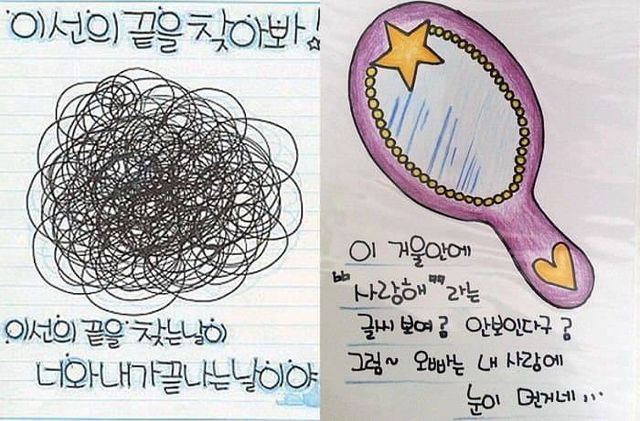 이선의 끝을 찾아봐!
이선의 끝을 찾는날이
너와내가끝나는날이야
이 거울안에
"사랑해"라는
글씨 보여? 안보인다구?
그럼~ 오빠는 내 사랑에
눈이 먼거네...